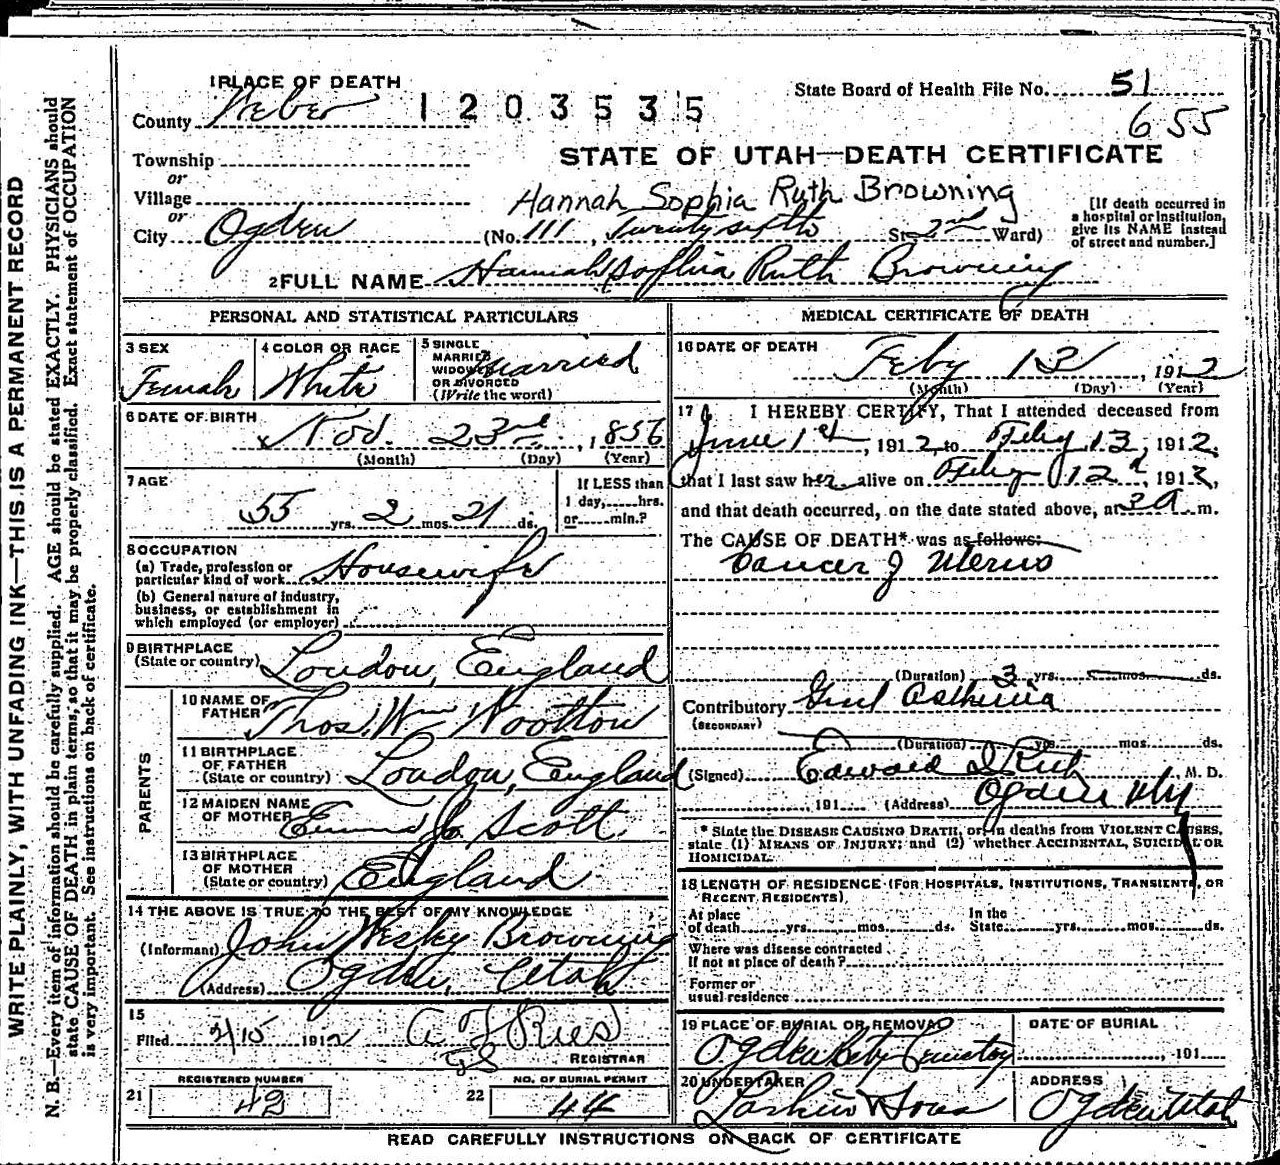 1 PLACE OF DEATH
State Board of Health File No. 51
County Weber
1 2 0 3 5 3 5
655
Township
STATE OF UTAH—DEATH CERTIFICATE
or
Village
Hannah Sophia Ruth Browning
or
City Ogden (No. 111, Twenty sixth St 2nd Ward)
[If death occurred in a hospital or institution, give its NAME instead of street and number.]
2 FULL NAME Hannah Sophia Ruth Browning
PERSONAL AND STATISTICAL PARTICULARS
3 SEX
Female
4 COLOR OR RACE
White
5 SINGLE
MARRIED
WIDOWED
OR DIVORCED
(Write the word)
Married
6 DATE OF BIRTH
Nov. 23rd, 1856
(Month) (Day) (Year)
7 AGE
55 yrs. 2 mos. 21 ds.
If LESS than
1 day,......hrs.
or......min.?
8 OCCUPATION
(a) Trade, profession or
particular kind of work Housewife
(b) General nature of industry,
business, or establishment in
which employed (or employer)
9 BIRTHPLACE
(State or country) London, England
PARENTS
10 NAME OF
FATHER Thos. Wm Wootton
11 BIRTHPLACE
OF FATHER
(State or country) London, England
12 MAIDEN NAME
OF MOTHER Scott
13 BIRTHPLACE
OF MOTHER
(State or country) England
14 THE ABOVE IS TRUE TO THE BEST OF MY KNOWLEDGE
(Informant) John Wesley Browning
(Address) Ogden, Utah
15
Filed 2/15 1912
REGISTRAR
21 REGISTERED NUMBER
42
22 NO. OF BURIAL PERMIT
44
MEDICAL CERTIFICATE OF DEATH
16 DATE OF DEATH
Feby 13, 1912
(Month) (Day) (Year)
17 I HEREBY CERTIFY, That I attended deceased from
June 1st, 1912, to Feby 13, 1912,
that I last saw her alive on Feby 12, 1912,
and that death occurred, on the date stated above, at 3 A m.
The CAUSE OF DEATH* was as follows:
Cancer of Uterus
(Duration) 3 yrs. mos. ds.
Contributory Genl Asthenia
(SECONDARY)
(Duration) yrs. mos. ds.
(Signed) Edward I Rich, M. D.
, 191 (Address) Ogden Utah
* State the DISEASE CAUSING DEATH, or, in deaths from VIOLENT CAUSES,
state (1) MEANS OF INJURY; and (2) whether ACCIDENTAL, SUICIDAL OR
HOMICIDAL.
18 LENGTH OF RESIDENCE (FOR HOSPITALS, INSTITUTIONS, TRANSIENTS, OR
RECENT RESIDENTS).
At place
of death......yrs......mos......ds.
In the
State......yrs......mos......ds.
Where was disease contracted
If not at place of death?
Former or
usual residence
19 PLACE OF BURIAL OR REMOVAL
Ogden City Cemetery
DATE OF BURIAL
, 191
20 UNDERTAKER
Larkin & Sons
ADDRESS
Ogden Utah
READ CAREFULLY INSTRUCTIONS ON BACK OF CERTIFICATE
WRITE PLAINLY, WITH UNFADING INK—THIS IS A PERMANENT RECORD
N. B.—Every item of information should be carefully supplied. AGE should be stated EXACTLY. PHYSICIANS should
state CAUSE OF DEATH in plain terms, so that it may be properly classified. Exact statement of OCCUPATION
is very important. See instructions on back of certificate.